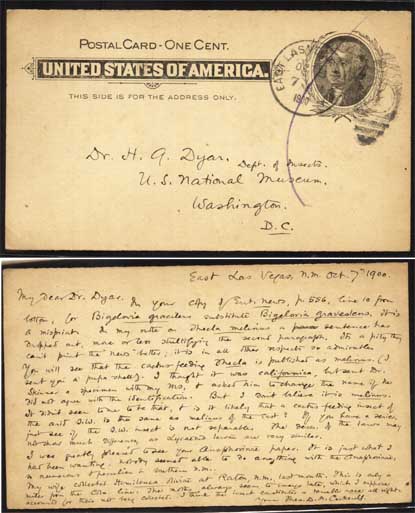 POSTAL CARD - ONE CENT.
UNITED STATES OF AMERICA.
THIS SIDE IS FOR THE ADDRESS ONLY.
EAST LAS
Dr. H. G. Dyar, Dept. of Insects.
U. S. National Museum,
Washington.
D.C.
East Las Vegas, N.M. Oct. 7th 1900.
My Dear Dr. Dyar. In your copy of Ent. News, p. 556, line 10 from
bottom, for Bigelovia gracilens substitute Bigelovia graveolens, it is
a misprint. In my note on Thecla melinus a sentence has
dropped out, more or less stultifying the second paragraph. It's a pity they
can't print the 'news' better; it is in all other respects so admirable.
You will see that the cactus-feeding Thecla is published as melinus. (I
sent you a pupa-shell). I thought it was californica, but sent Dr.
Skinner a specimen with my MS, & asked him to change the name if he
did not agree with the identification. But I don't believe it is melinus.
It don't seem to me to be that, & is it likely that a cactus-feeding insect of
the arid S.W. is the same as melinus of the east? If you have a series,
just see if the S.W. insect is not separable. The of the larva may
not show much difference, as Lycaenid larvae are very similar.
I was greatly pleased to see your paper. It is just what I
had been wanting. Nobody seemed able to do anything with
is numerous & peculiar in northern N.M.
My wife collected Hemileuca at Raton, N.M. last month. This is only a
miles from the Colo. line. The moths always seem to emerge late, which I suppose
accounts for their not very collected. I think the insect constitutes a race all right.
Yours Theo. D. A. Cockerell.